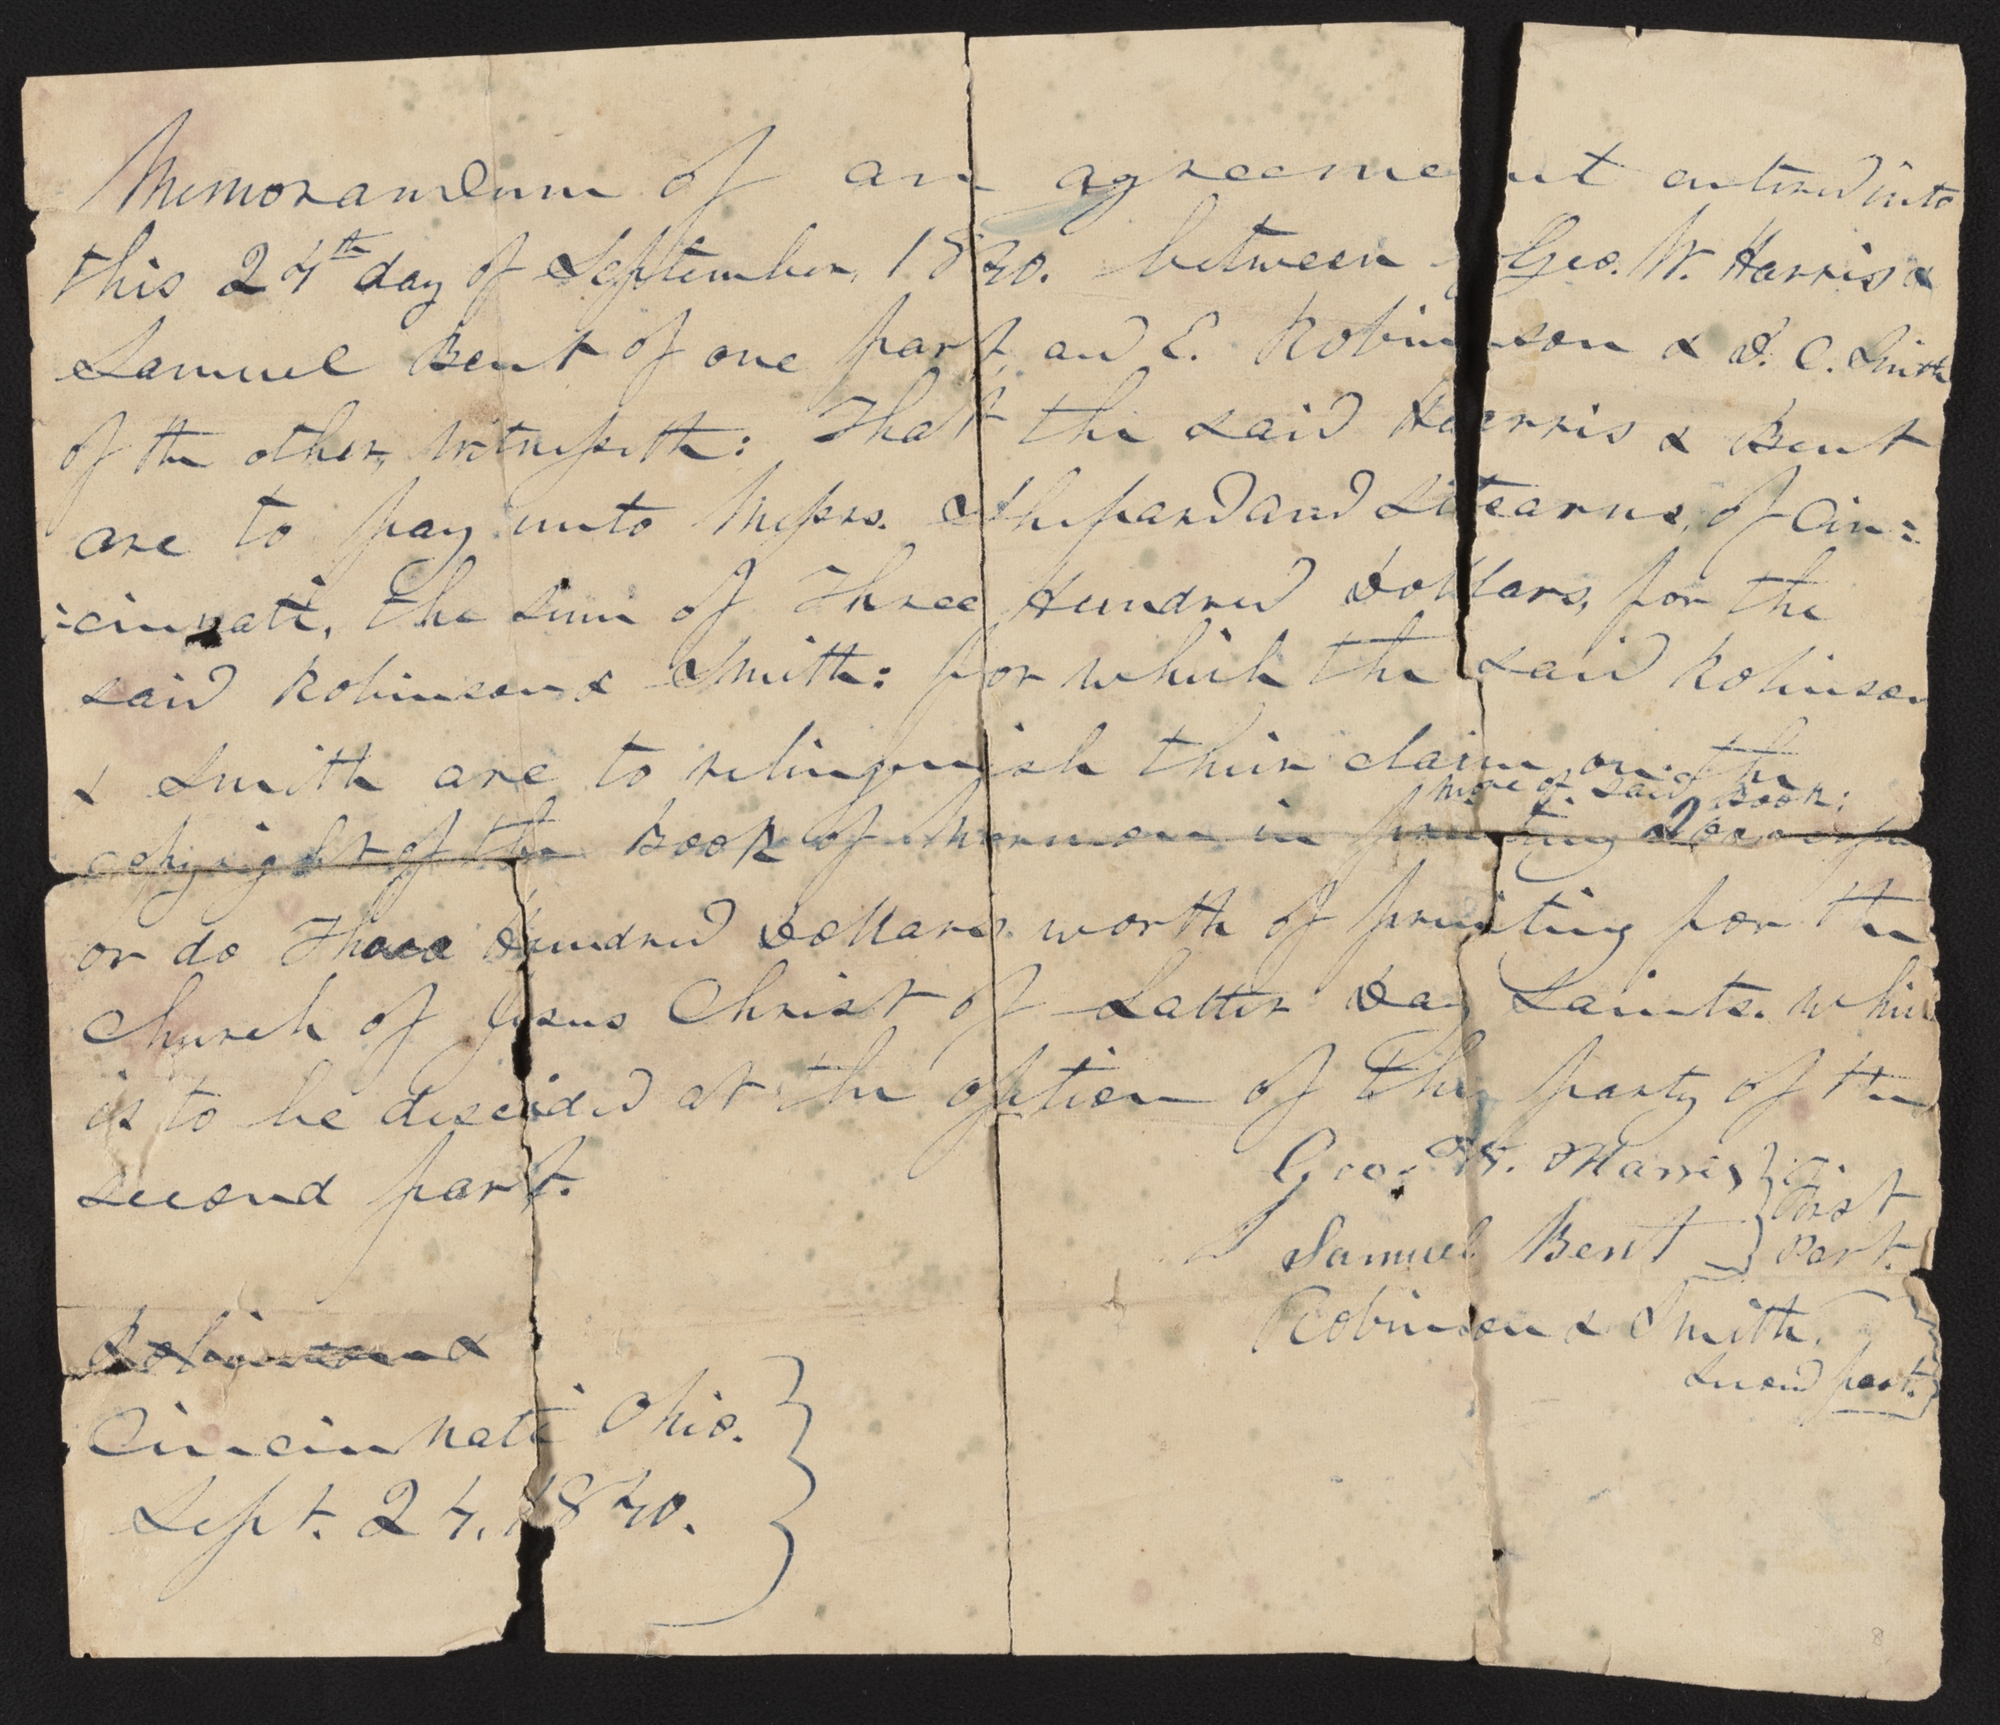 Memorandum of an agreement entered into
this 24th day of September, 1840. between Geo. W. Harris &
Samuel Bent of one part, and E. Robinson & D. C. Smith
of the other, witnesseth: That the said Harris & Bent
are to pay unto Messrs. Shepard and Stearns, of Cin=
=cinnati, the sum of Three Hundred Dollars, for the
said Robinson & Smith: for which the said Robinson
& Smith are to relinquish their claim on the
more of said Book;
copyright of the Book of Mormon in printing 2000
or do Three Hundred Dollars worth of printing for the
Church of Jesus Christ of Latter Day Saints. which
is to be descided at the option of the party of the
second part.
Geo. W. Harris } First
Samuel Bent } Part.
Robinson & Smith.
second part.
Robinson &
Cincinnati Ohio.
Sept. 24, 1840.
8